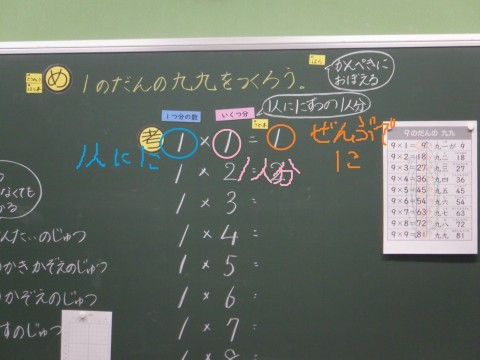 め 1のだんの九九をつくろう。
かんぺきに
おぼえる
1つ分の数
いくつ分
1人に1こずつの1人分
考 1×1=1
1人に1こ
1人分
ぜんぶで
1こ
1×2=2
1×3=
1×4=
1×5=
1×6=
1×7=
なくても
かぞえのじゅつ
かぞえのじゅつ
すのじゅつ
9のだんの 九九
9×1= 9 九一が 9
9×2=18 九二 18
9×3=27 九三 27
9×4=36 九四 36
9×5=45 九五 45
9×6=54 九六 54
9×7=63 九七 63
9×8=72 九八 72
9×9=81 九九 81